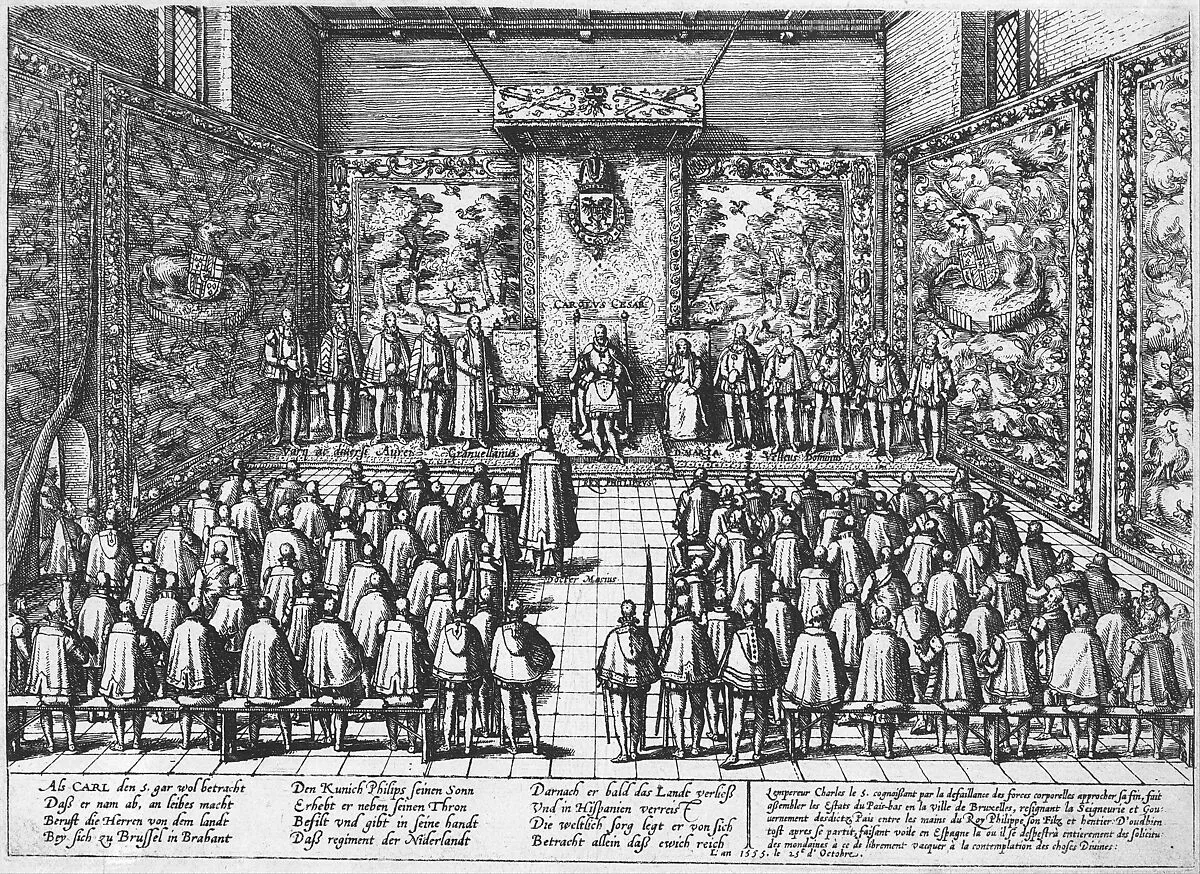 CAROLVS CESAR
Granvellanus
D. MARIA
REX PHILIPPVS
Docter Masius
Als CARL den 5. gar wol betracht
Daß er nam ab, an leibes macht
Beruft die Herren von dem landt
Bey sich zu Brussel in Brabant
Den Kunich Philips seinen Sonn
Erhebt er neben seinen Thron
Befilt vnd gibt in seine handt
Daß regiment der Niderlandt
Darnach er bald das Landt verließ
Vnd in Hispanien verreist
Die weltlich sorg legt er von sich
Betracht allein daß ewich reich
Lempereur Charles le 5. cognaissant par la defaillance des forces corporelles approcher sa fin, fait
assembler les Estats du Pais-bas en la ville de Bruxelles, resignant la Seigneurie et Gou-
uernement desdictz Pais entre les mains du Roy Philippe son Filz et heritier: D'oudbien
tost apres se partit, faisant voile en Espagne la ou il se despestra entierement des solicitu-
des mondaines à ce de librement vacquer à la contemplation des choses Diuines:
L'an 1555. le 25e d'Octobre.